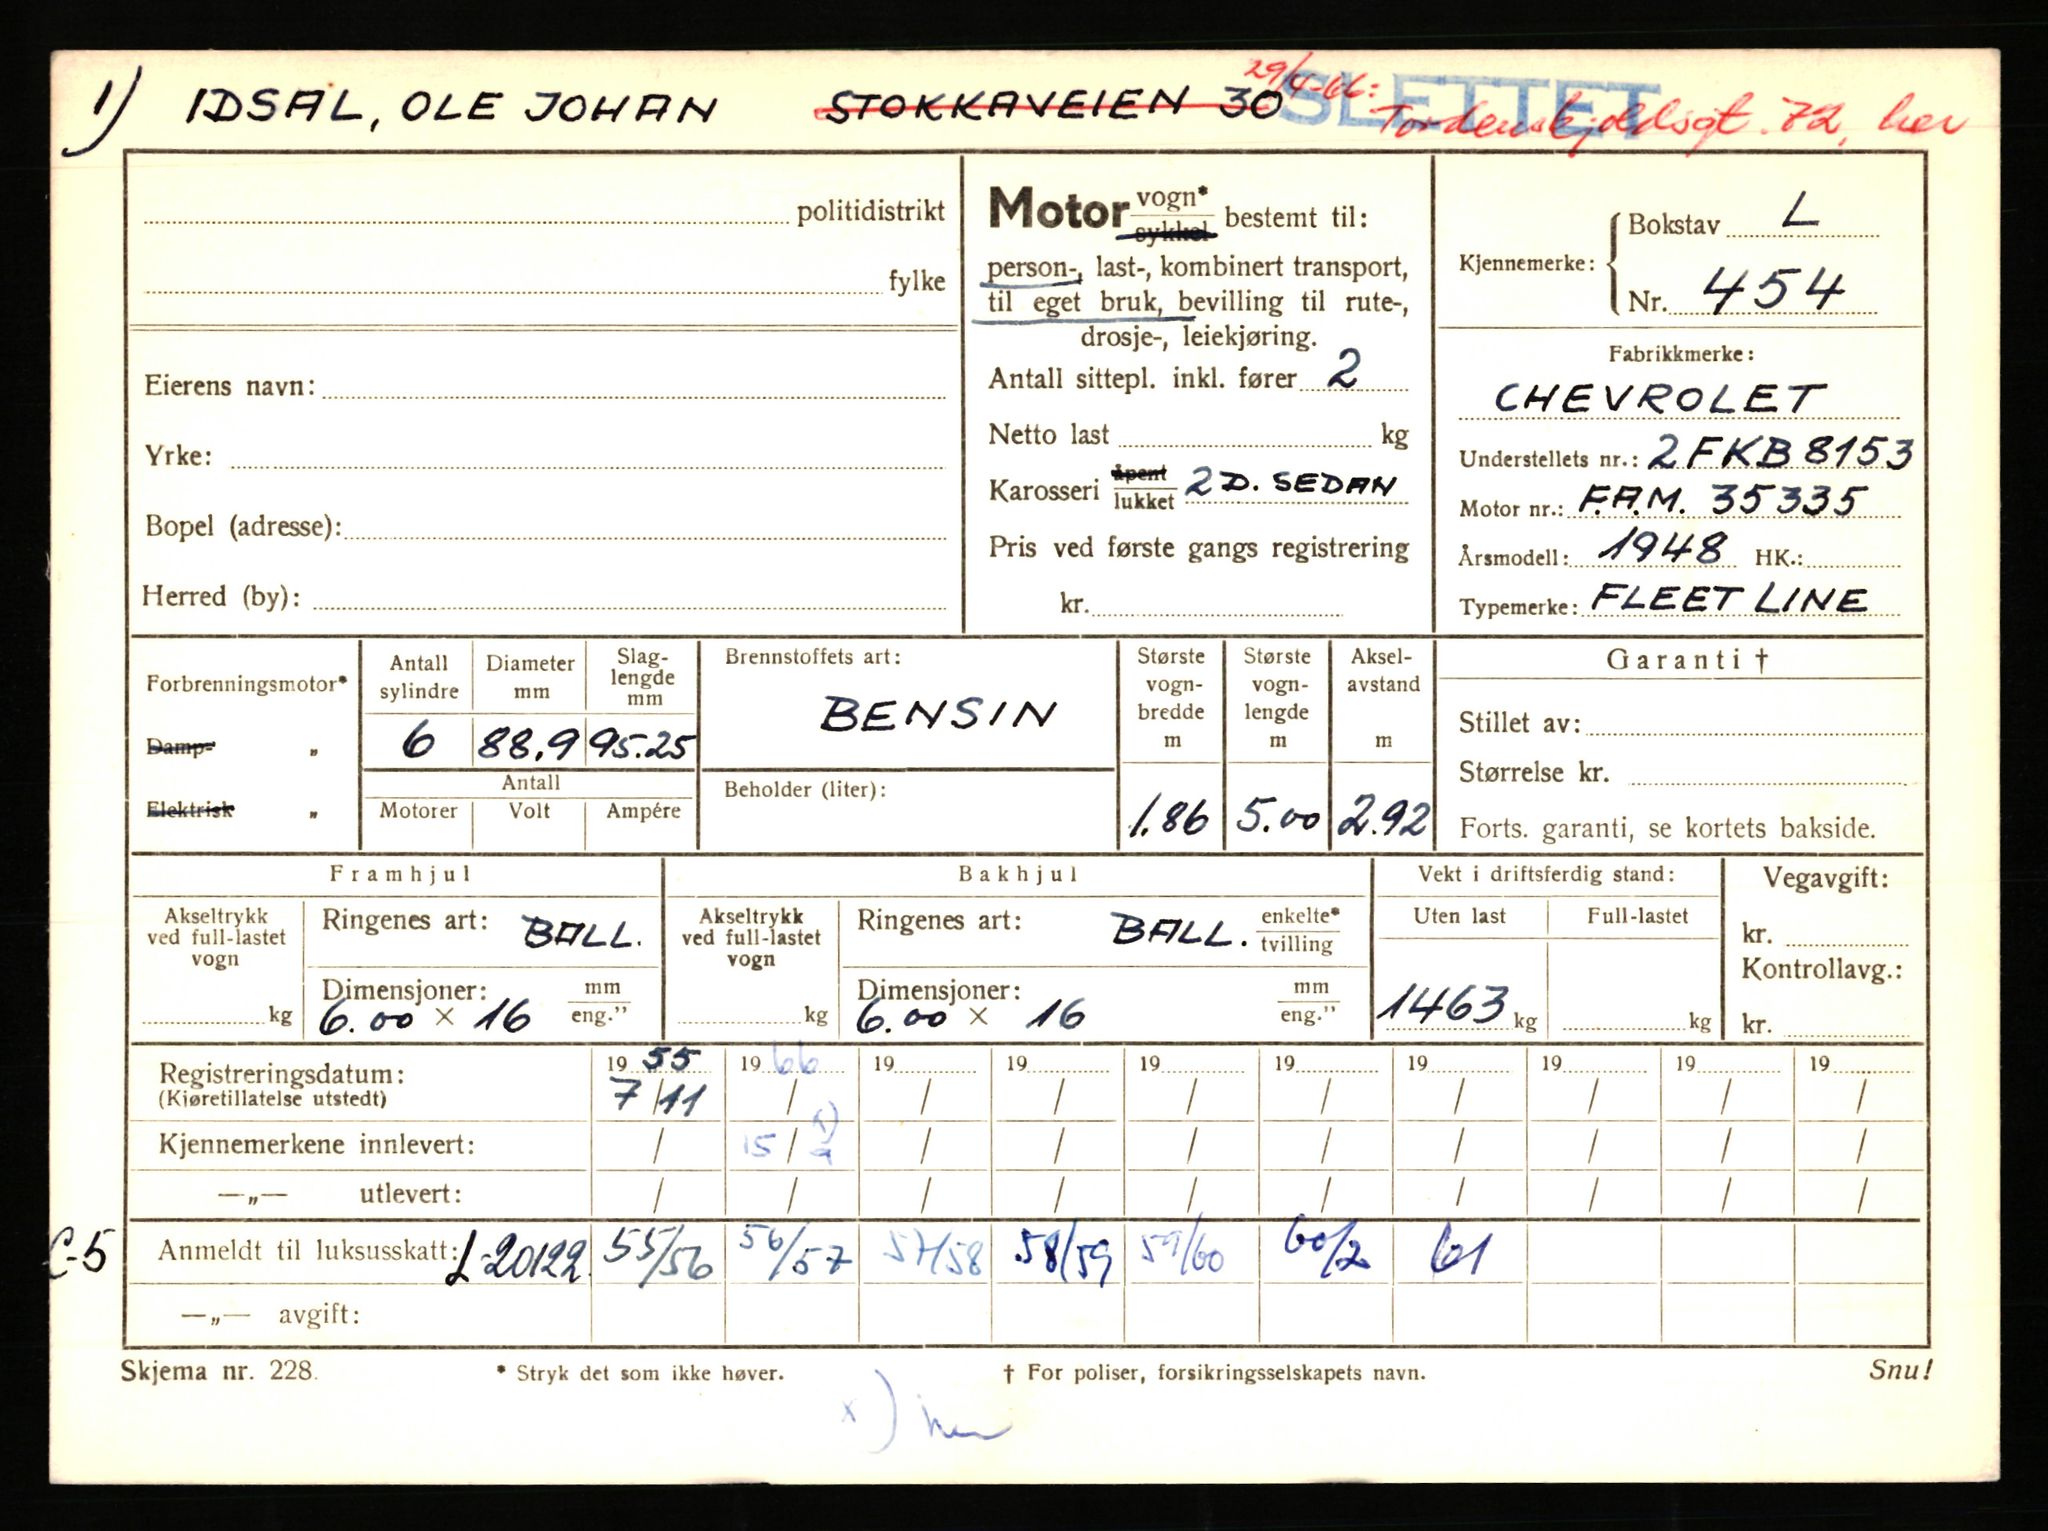 1) IDSAL, OLE JOHAN STOKKAVEIEN 30 29/4-66: SLETTET Tordenskjoldsgt. 72, her
politidistrikt
fylke
Eierens navn:
Yrke:
Bopel (adresse):
Herred (by):
Motor vogn* sykkel bestemt til:
person-, last-, kombinert transport,
til eget bruk, bevilling til rute-,
drosje-, leiekjøring.
Antall sittepl. inkl. fører 2
Netto last kg
Karosseri åpent lukket 2 D. SEDAN
Pris ved første gangs registrering
kr.
Kjennemerke: Bokstav L
Nr. 454
Fabrikkmerke:
CHEVROLET
Understellets nr.: 2FKB8153
Motor nr.: F.A.M. 35335
Årsmodell: 1948 HK.:
Typemerke: FLEET LINE
Forbrenningsmotor*
Damp- „
Elektrisk „
Antall sylindre
6
Diameter mm
88.9
Slag-lengde mm
95.25
Antall
Motorer Volt Ampére
Brennstoffets art:
BENSIN
Beholder (liter):
Største vogn-bredde m
1.86
Største vogn-lengde m
5.00
Aksel-avstand m
2.92
Garanti †
Stillet av:
Størrelse kr.
Forts. garanti, se kortets bakside.
Framhjul
Akseltrykk ved full-lastet vogn
kg
Ringenes art: BALL.
Dimensjoner: mm eng."
6.00 × 16
Bakhjul
Akseltrykk ved full-lastet vogn
kg
Ringenes art: BALL. enkelte* tvilling
Dimensjoner: mm eng."
6.00 × 16
Vekt i driftsferdig stand:
Uten last Full-lastet
1463 kg kg
Vegavgift:
kr.
Kontrollavg.:
kr.
Registreringsdatum: 19 55 19 66 19 19 19 19 19 19 19 19
(Kjøretillatelse utstedt) 7/11 / / / / / / / / /
Kjennemerkene innlevert: / 15/9 x) / / / / / / / /
—„— utlevert: / / / / / / / / / /
C-5 Anmeldt til luksusskatt: L-20122. 55/56 56/57 57/58 58/59 59/60 60/2 61
—„— avgift:
Skjema nr. 228. * Stryk det som ikke høver. † For poliser, forsikringsselskapets navn. Snu!
x) her